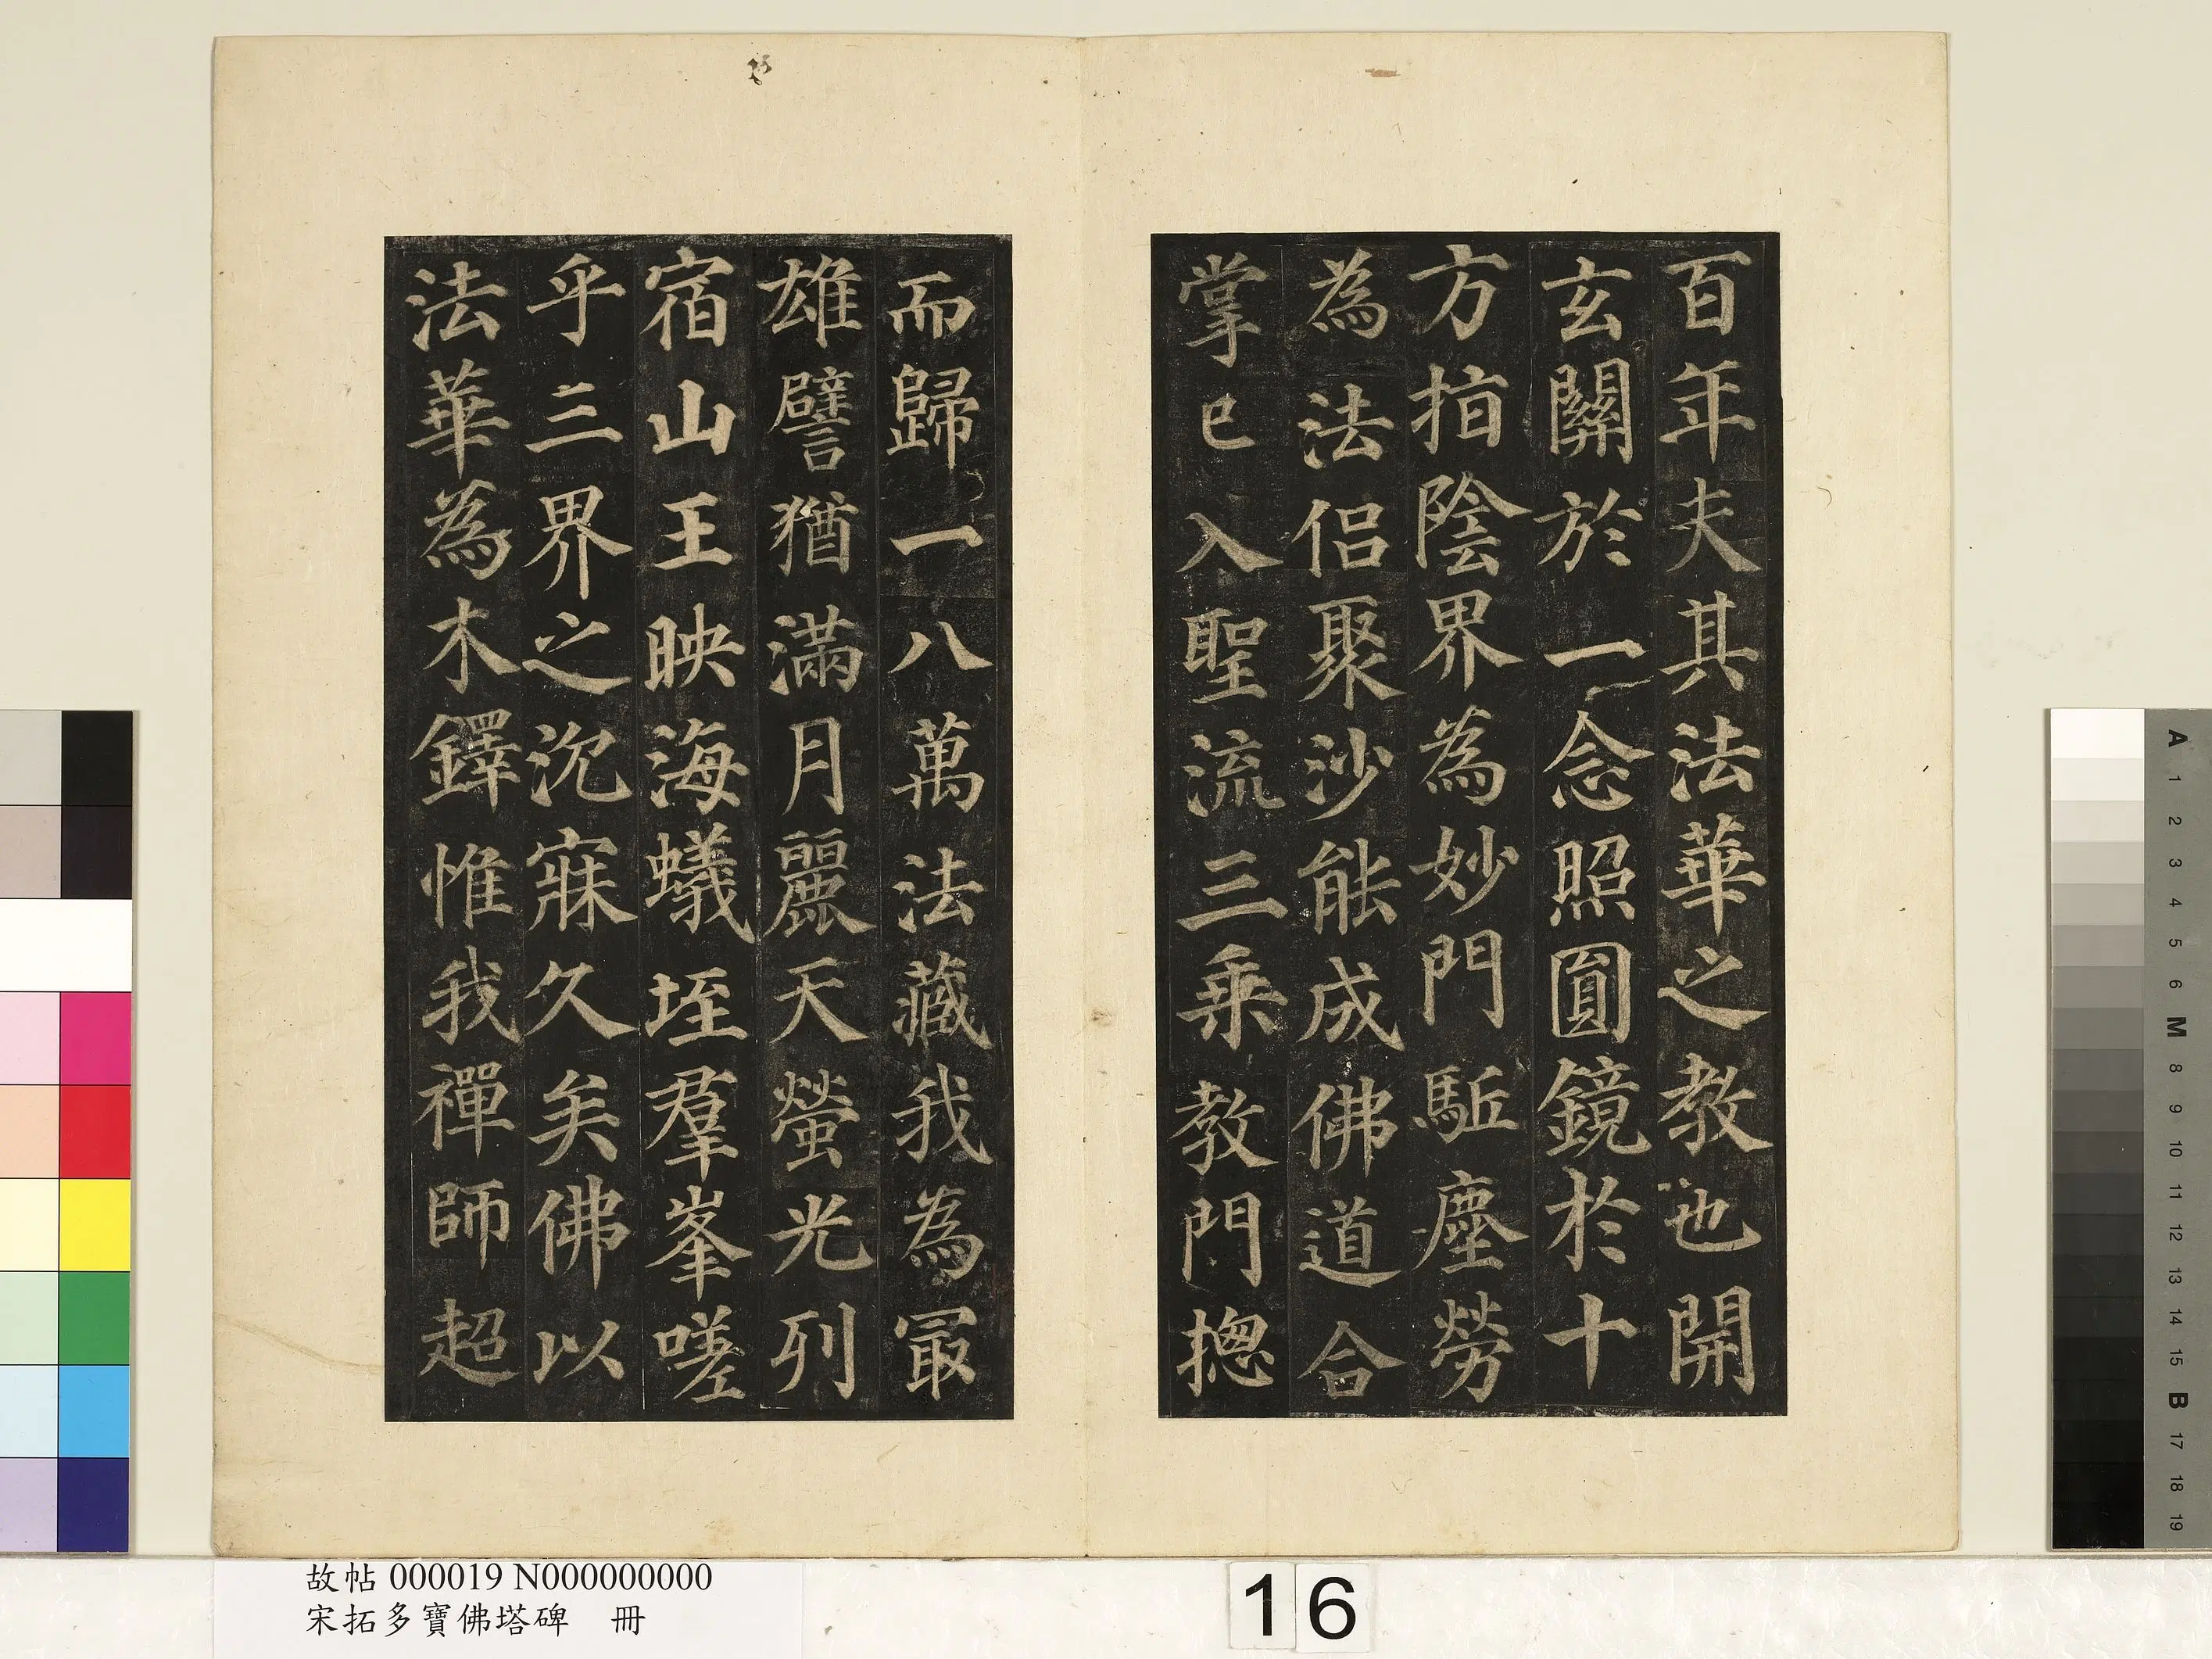 百年夫其法華之教也開
玄關於一念照圓鏡於十
方指陰界為妙門駈塵勞
為法侣聚沙能成佛道合
掌已入聖流三乗教門揔
而歸一八萬法藏我為㝡
雄譬猶滿月麗天螢光列
宿山王映海蟻垤羣峯嗟
乎三界之沉寐久矣佛以
法華為木鐸惟我禪師超
故帖 000019 N000000000
宋拓多寶佛塔碑 冊
16
A
1
2
3
4
5
6
M
8
9
10
11
12
13
14
15
B
17
18
19